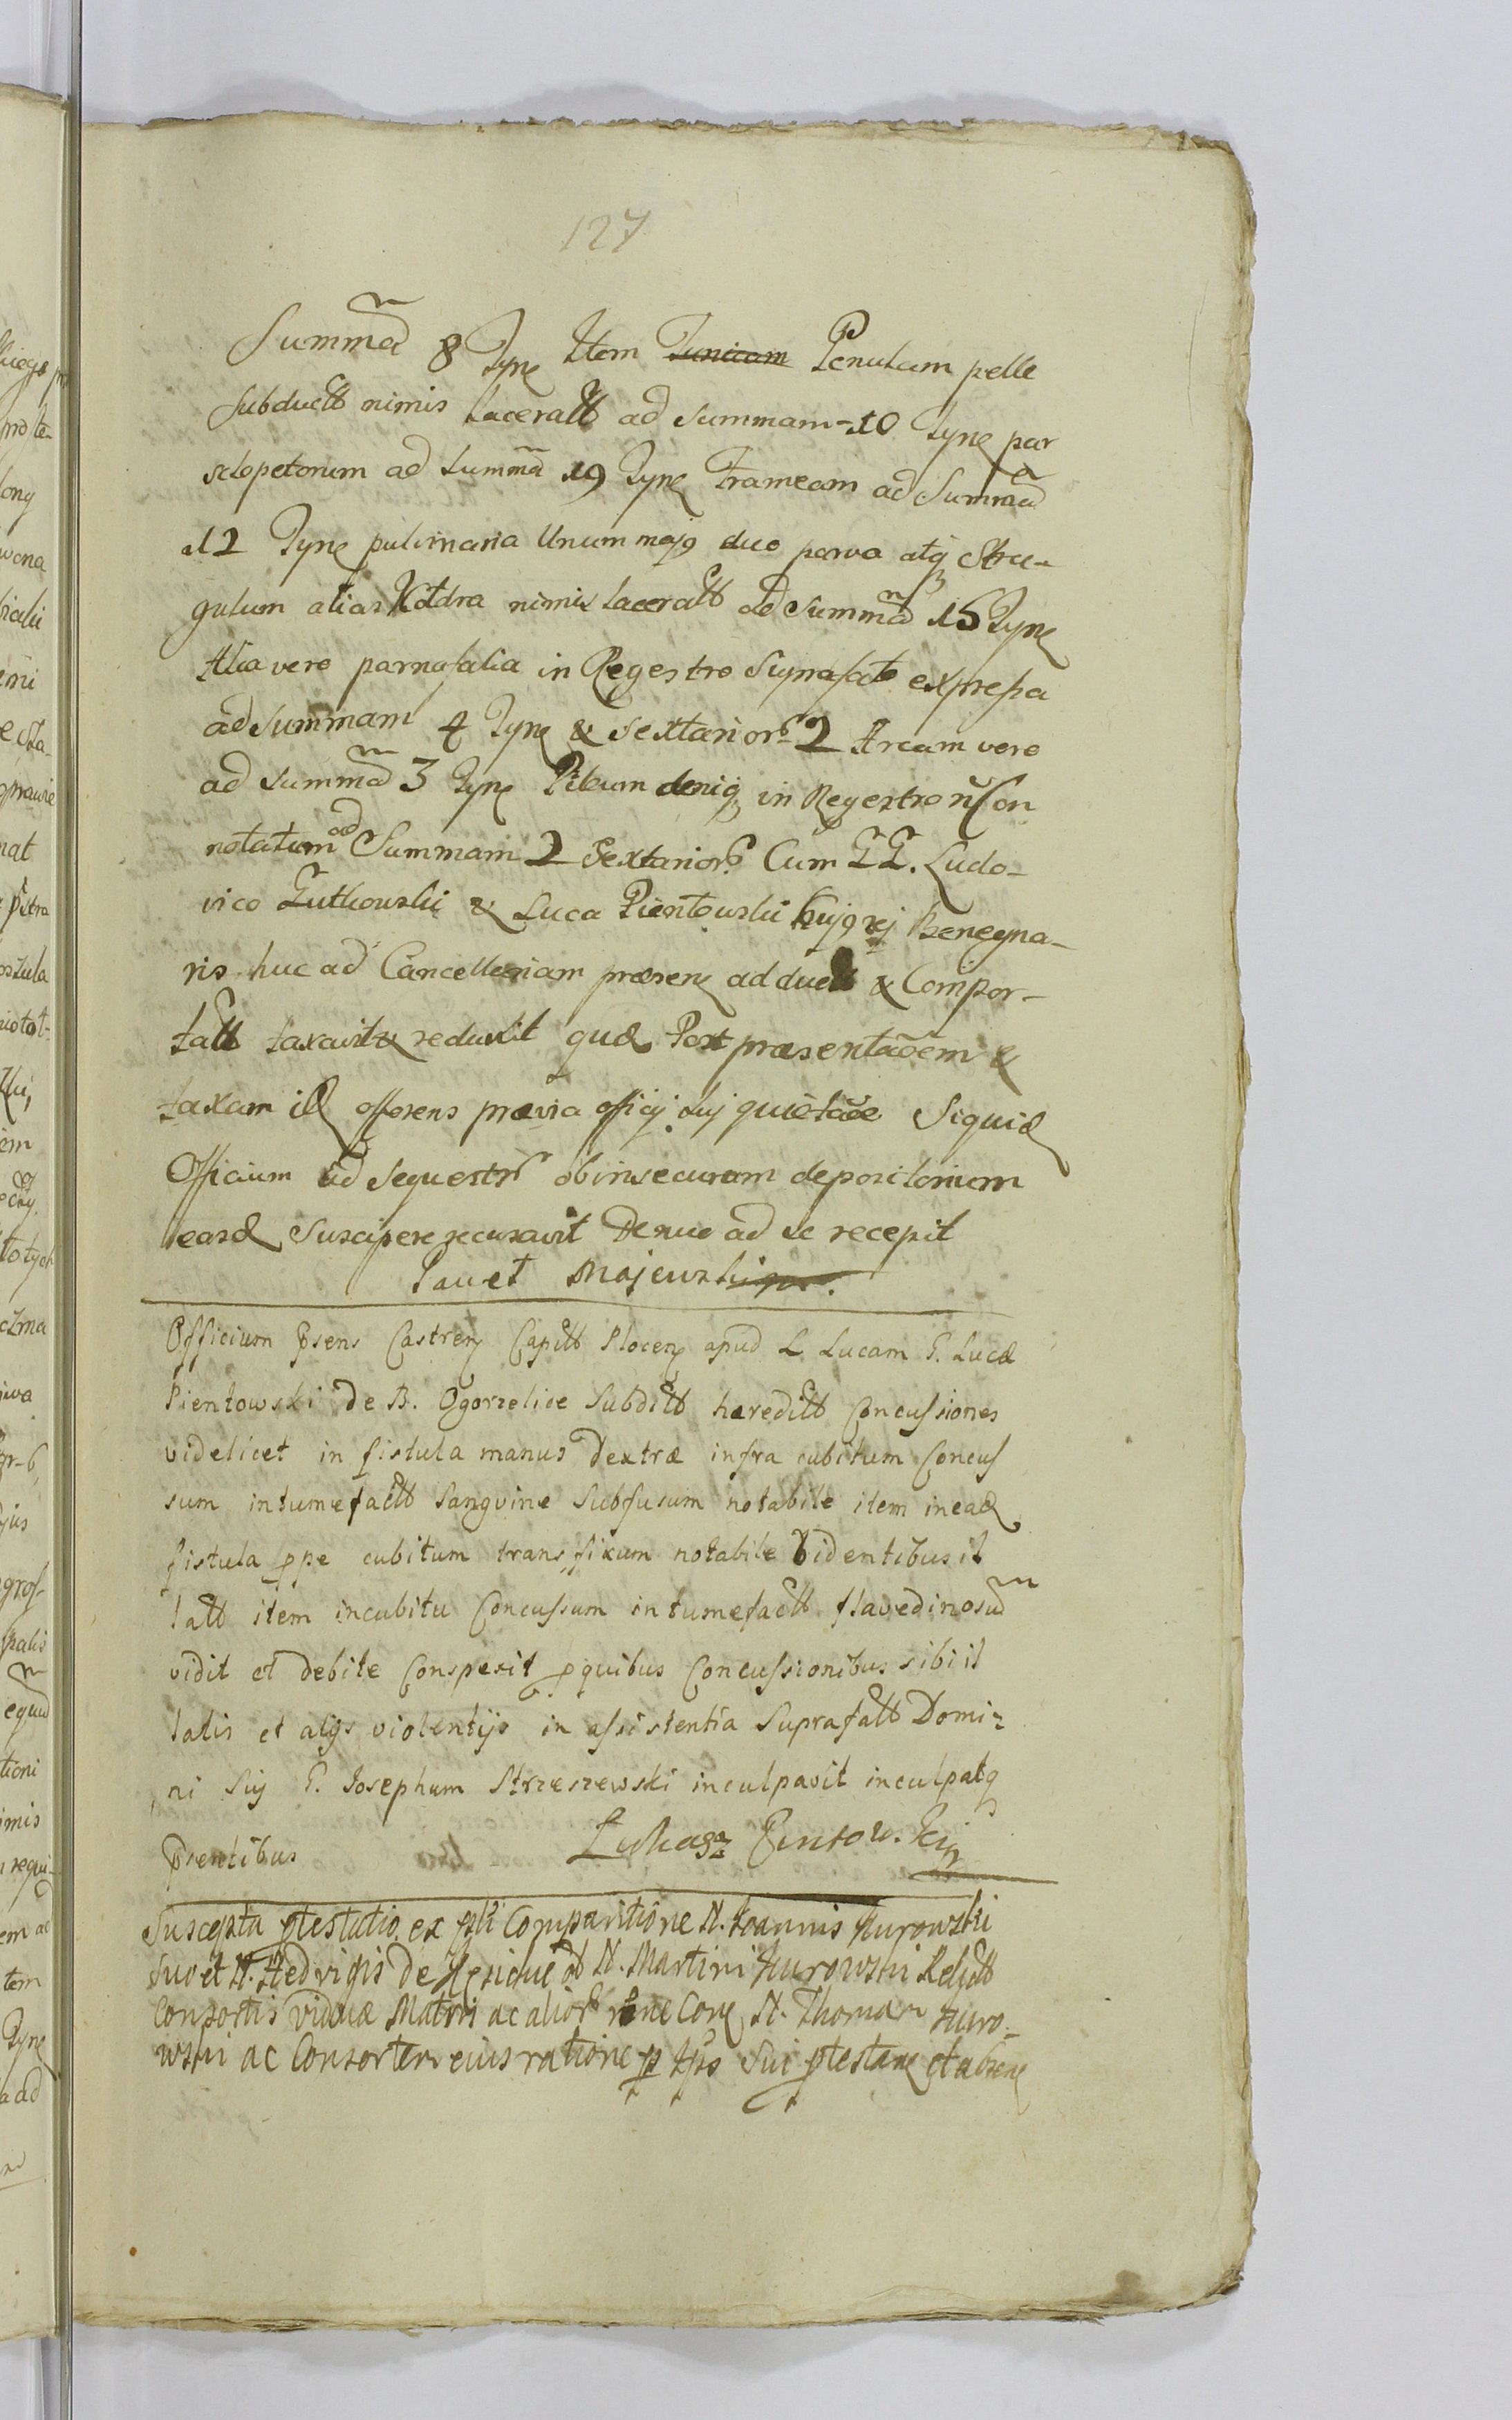 127
Summam 8 Tyne Item Tunicam Penulam pelle
subductt nimis laceratt ad summam 10 Tyne par
sclopetorum ad summam 19 Tyne Frameam ad Summam
12 Tyne pulvinaria Unum maj9 duo parva atq Stra-
gulum alias Kołdra nimis laceratt ad Summam 15 Tyne
Alia vero parnafalia in Regestro Suprafato expressa
ad summam 4 Tyne & sextarior 2 Arcam vero
ad summam 3 Tyne Pileum deniq in Regestro n Con
notatum ad Summam 2 Sextarior Cum GG. Ludo-
vico Gutkowski & Luca Pientowski huj9 rej
ris huc ad Cancellariam præsen adductt & Compor-
tatt taxavit & reduxit quæ Post præsentaõem &
taxam offerens prævia officij suj quietaõe Siquid
Officium ad sequestr ob insecurum depositorium
easd Suscipere recusavit Denuo ad se recepit
Pawet Majewski
Officium Psens Castren Capitt Plocen apud L. Lucam G. Lucæ
Pientowski de B. Ogorzelice Subditt hæreditt Concussiones
videlicet in fistula manus dextræ infra cubitum Concus
sum intumefactt Sanguine Subfusum notabile item inead
fistula ppe cubitum transfixum notabile bidentibus il
latt item incubitu Concussum intumefactt flavedinosum
vidit et debite Conspexit pquibus Concussionibus sibi il
latis et alijs violentijs in assistentia Suprafatt Domi-
ni Suj G. Josephum Strzeszewski inculpavit inculpatq
Prentibus Łukasz Pientowski
Suscepta ptestatio ex pti Comparitione N. Joannis Zurowski
suo et N. Hedvigis de olt N. Martini Zurowski Relictt
Consortis viduæ Matris ac alior nne Con N. Thomam Zuro-
wski ac Consortem eius ratione p Ipso Sui ptestan et absen